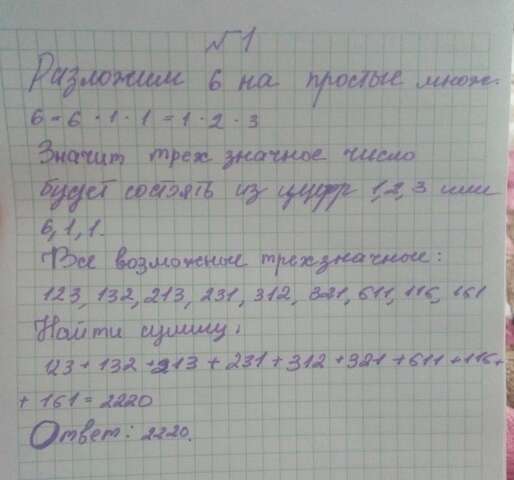 №1
Разложим 6 на простые множ.
6 = 6 · 1 · 1 = 1 · 2 · 3
Значит трех значное число
будет состоять из цифр 1, 2, 3 или
6, 1, 1.
Все возможные трехзначные:
123, 132, 213, 231, 312, 321, 611, 116, 161
Найти сумму:
123 + 132 + 213 + 231 + 312 + 321 + 611 + 116 +
+ 161 = 2220
Ответ: 2220.